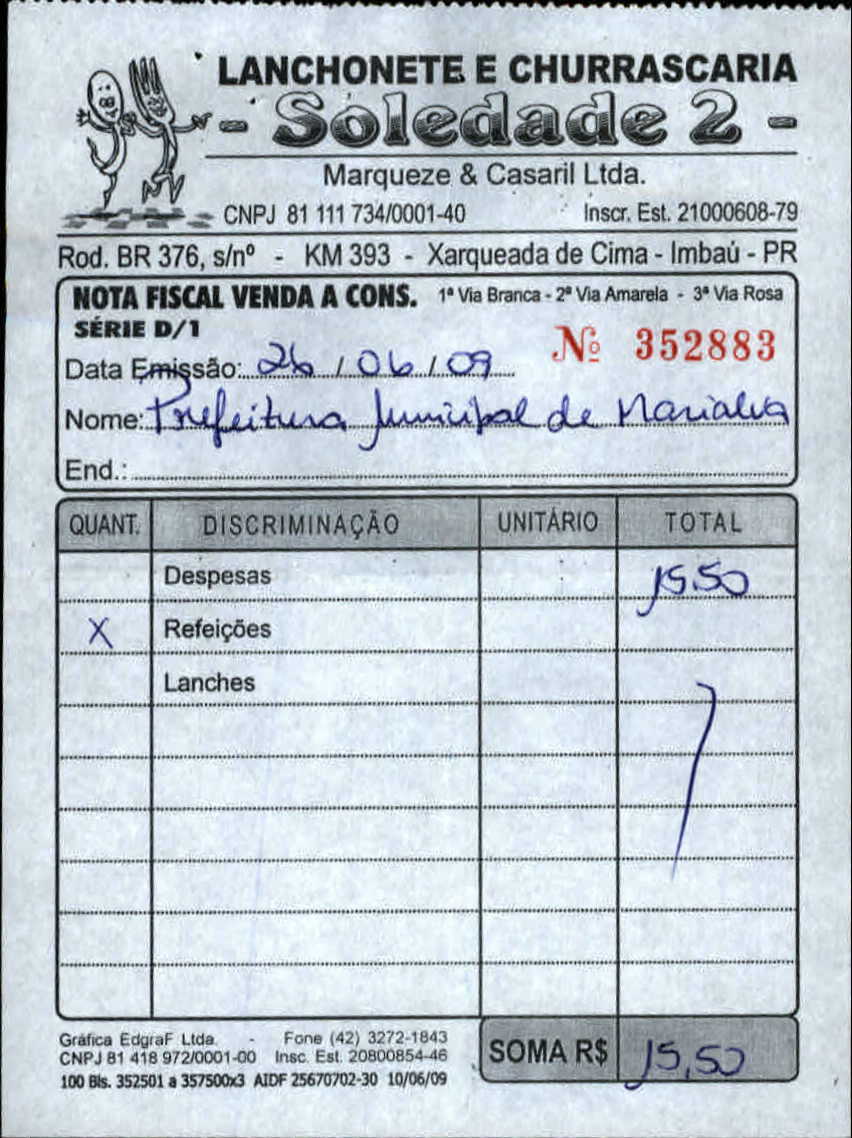 LANCHONETE E CHURRASCARIA
- Soledade 2 -
Marqueze & Casaril Ltda.
CNPJ 81 111 734/0001-40 Inscr. Est. 21000608-79
Rod. BR 376, s/nº - KM 393 - Xarqueada de Cima - Imbaú - PR
NOTA FISCAL VENDA A CONS. 1ª Via Branca - 2ª Via Amarela - 3ª Via Rosa
SÉRIE D/1
Nº 352883
Data Emissão: 26 / 06 / 09
Nome: Prefeitura Municipal de Marialva
End.:
QUANT. DISCRIMINAÇÃO UNITÁRIO TOTAL
Despesas 15.50
X Refeições
Lanches
Gráfica EdgraF Ltda. - Fone (42) 3272-1843
CNPJ 81 418 972/0001-00 Insc. Est. 20800854-46
100 Bls. 352501 a 357500x3 AIDF 25670702-30 10/06/09
SOMA R$ 15,50